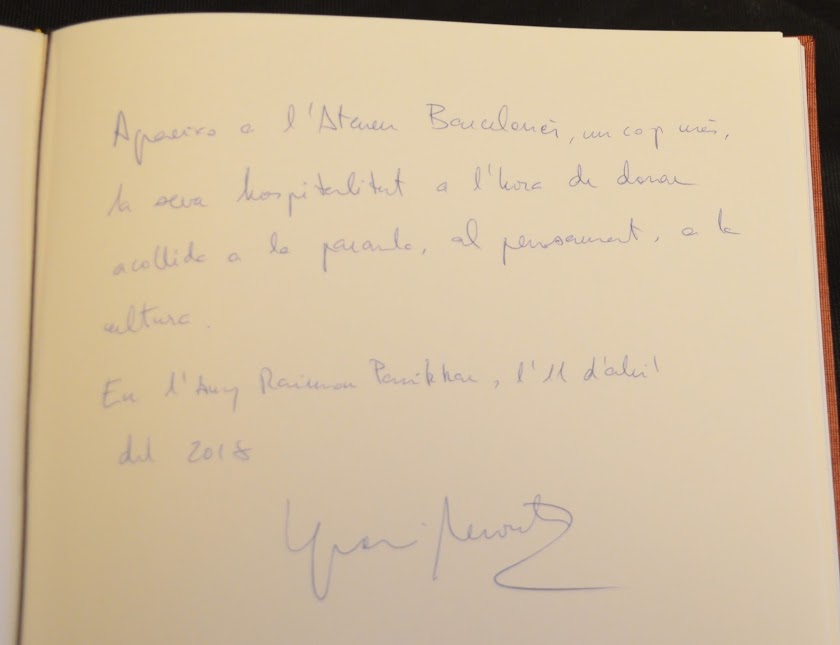 Agraeixo a l'Ateneu Barcelonès, un cop més,
la seva hospitalitat a l'hora de donar
acollida a la paraula, al pensament, a la
cultura.
En l'Any Raimon Panikkar, l'11 d'abril
del 2018